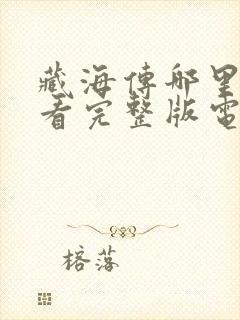 藏海傳哪里
看完整版電
榕落